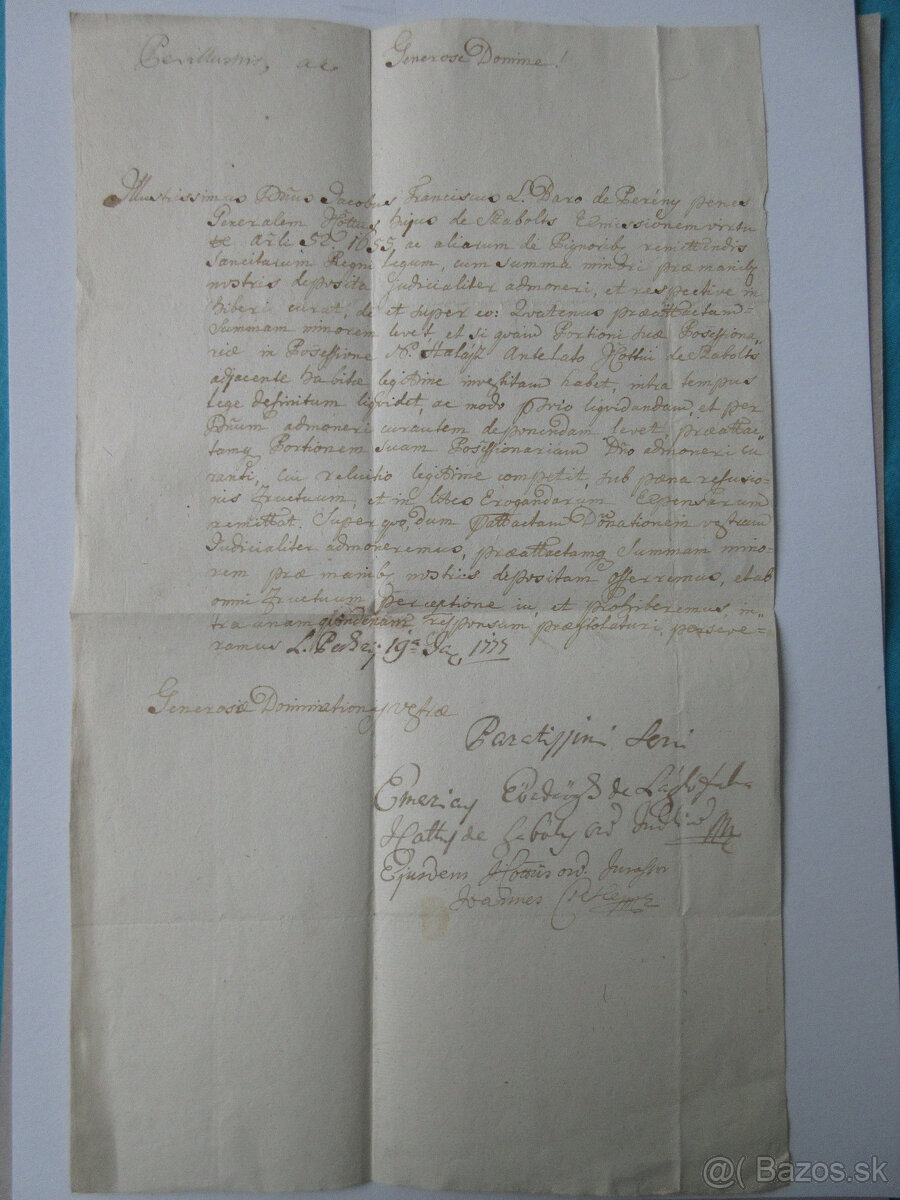 Perillustris, ac Generose Domine!
Illustrissimus Dnus Jacobus Franciscus L. Baro de Perény penes
Generalem Hottus hujus de Szabolts Emissionem virtu
te Arli 52. 1655, ac aliarum de Pignorib remittendis
Sancitarum Regni legum, cum summa minori præ manib
nostris deposita Judicialiter admoneri, et respective in
hiberi curat, de et super eo: Quatenus præattactam
Summam minorem levet, et si quam Portioni suæ Possessiona,,
riæ in Possessione N. Antelato Hottui de Szabolts
adjacente habitæ legitime investitam habet, intra tempus
lege definitum liquidet, ac modo prio liquidandam, et per
Dnum admoneri curantem deponendam levet, præattac,,
tamq Portionem suam Possessionariam Dno admoneri cu
ranti, cui reluitio legitime competit, sub pæna refusio,,
nis Fructuum, et in lobco Erogandarum Expensarum
remittat. Super quo, dum Pattactam Dnationem vestram
Judicialiter admoneremus, præattactamq Summam mino,,
rem præ manib nostris depositam offerremus, et ab
omni Fructuum perceptione in, et prohiberemus, in,,
tra unam responsum præstolaturi, perseve,,
ramus 19a 1777
Generosæ Dominationis vestræ
Paratissimi Servi
de
de ord
Ejusdem Hottus ord. Jurassor
Joannes
@( Bazos.sk